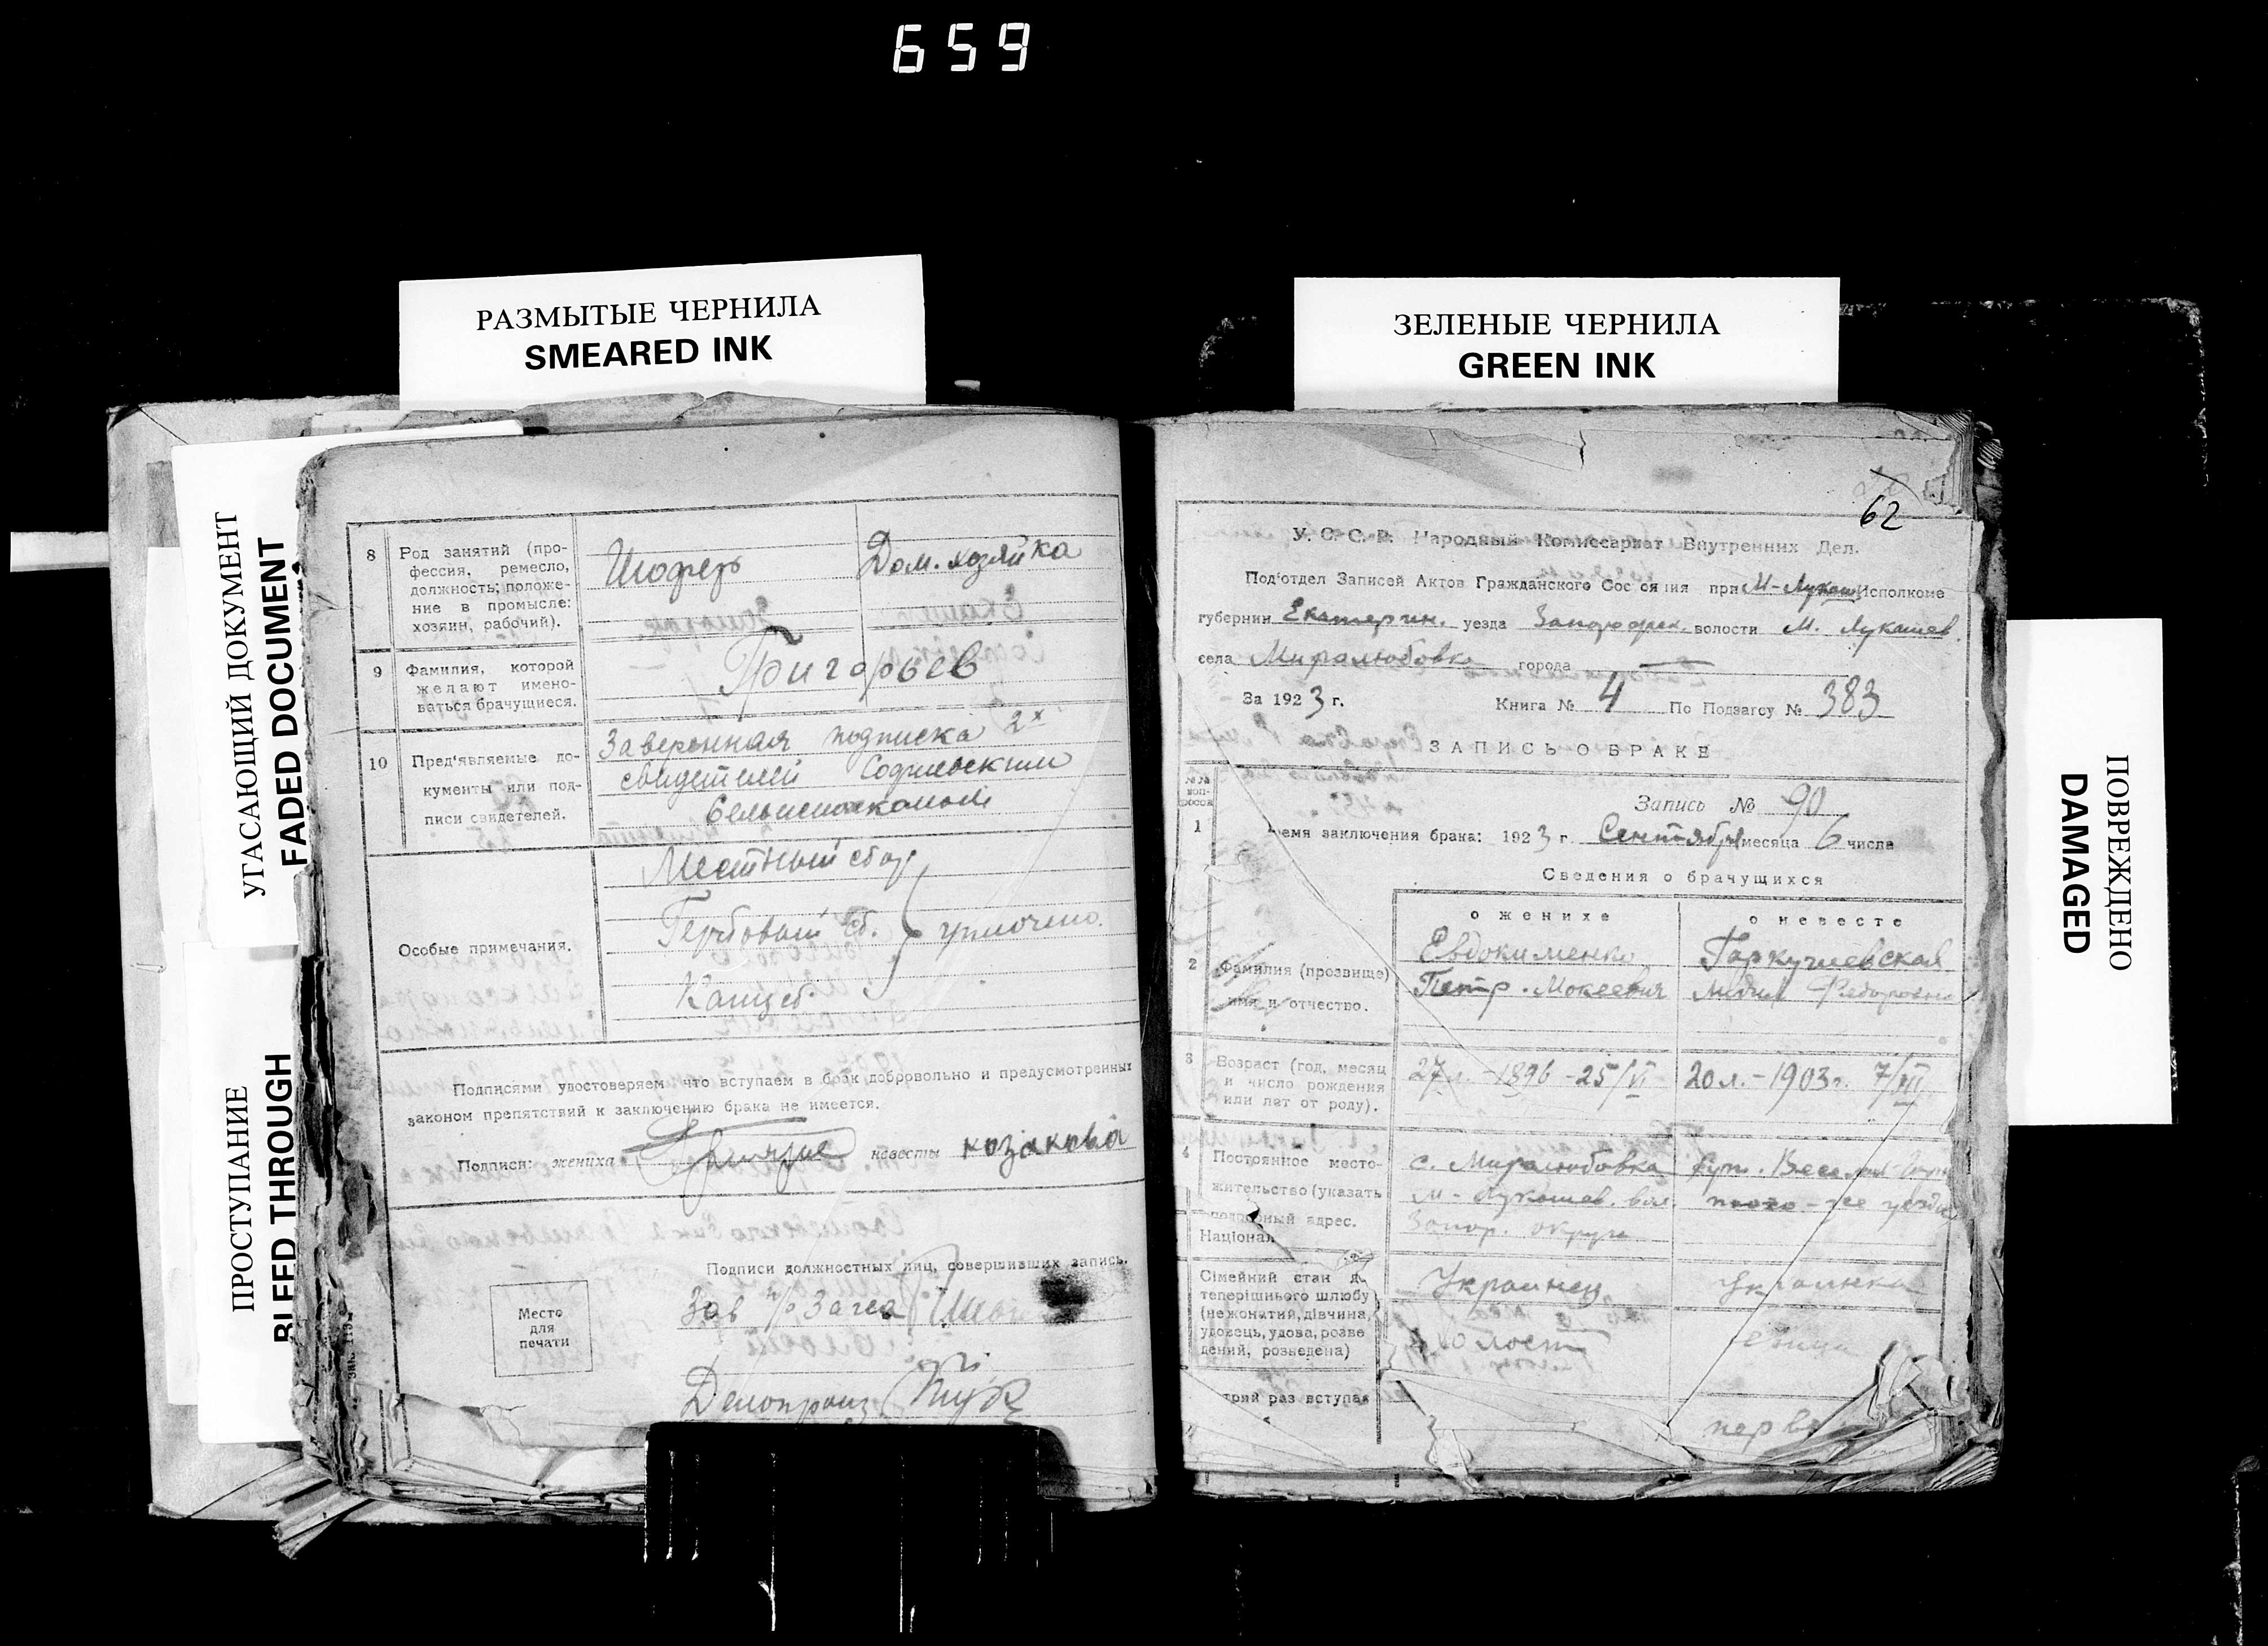 659
РАЗМЫТЫЕ ЧЕРНИЛА
SMEARED INK
ЗЕЛЕНЫЕ ЧЕРНИЛА
GREEN INK
УГАСАЮЩИЙ ДОКУМЕНТ
FADED DOCUMENT
ПРОСТУПАНИЕ
BLEED THROUGH
ПОВРЕЖДЕНО
DAMAGED
8
Род занятий (про-
фессия, ремесло,
должность; положе-
ние в промысле:
хозяин, рабочий).
Шофер
Дом. хозяйка
9
Фамилия, которой
желают имено-
ваться брачущиеся.
Григорьев
10
Пред'являемые до-
кументы или под-
писи свидетелей.
Заверенная подписка 2х
свидетелей Софиевским
Сельисполкомом
Особые примечания.
Местный сбор
Гербовый сб. уплочено.
Канц сб.
Подписями удостоверяем что вступаем в брак добровольно и предусмотренных
законом препятствий к заключению брака не имеется.
Подписи: жениха
невесты козакова
Подписи должностных лиц, совершивших запись.
Место
для
печати
Зав п/о Загса
Делопроиз
62
У. С. С. Р. Народный Комиссариат Внутренних Дел.
Под'отдел Записей Актов Гражданского Состояния при М-Лукаш Исполкоме
губернии Екатерин. уезда волости М. Лукашев.
села Миролюбовка города
За 1923 г. Книга № 4 По Подзагсу № 383
ЗАПИСЬ О БРАКЕ
№№
воп-
росов
Запись № 90
1
ремя заключения брака: 1923 г. Сентября месяца 6 числа
Сведения о брачущихся
о женихе
о невесте
2
Фамилия (прозвище)
имя и отчество.
Евдокименко
Петр Мокеевич
Федоровна
3
Возраст (год, месяц
и число рождения
или лет от роду).
27 л. - 1896 - 25/VI
20 л. - 1903 г. 7/III
4
Постоянное место-
жительство (указать
подробный адрес.
с. Миролюбовка
М - Лукашев. вол.
Запор. округа
того - же уезда
Націонал
Украинец
Украинка
Сімейний стан д
теперішнього шлюбу
(нежонатий, дівчина,
удовець, удова, розве
дений, розведена)
холост
тряй раз вступає
перв